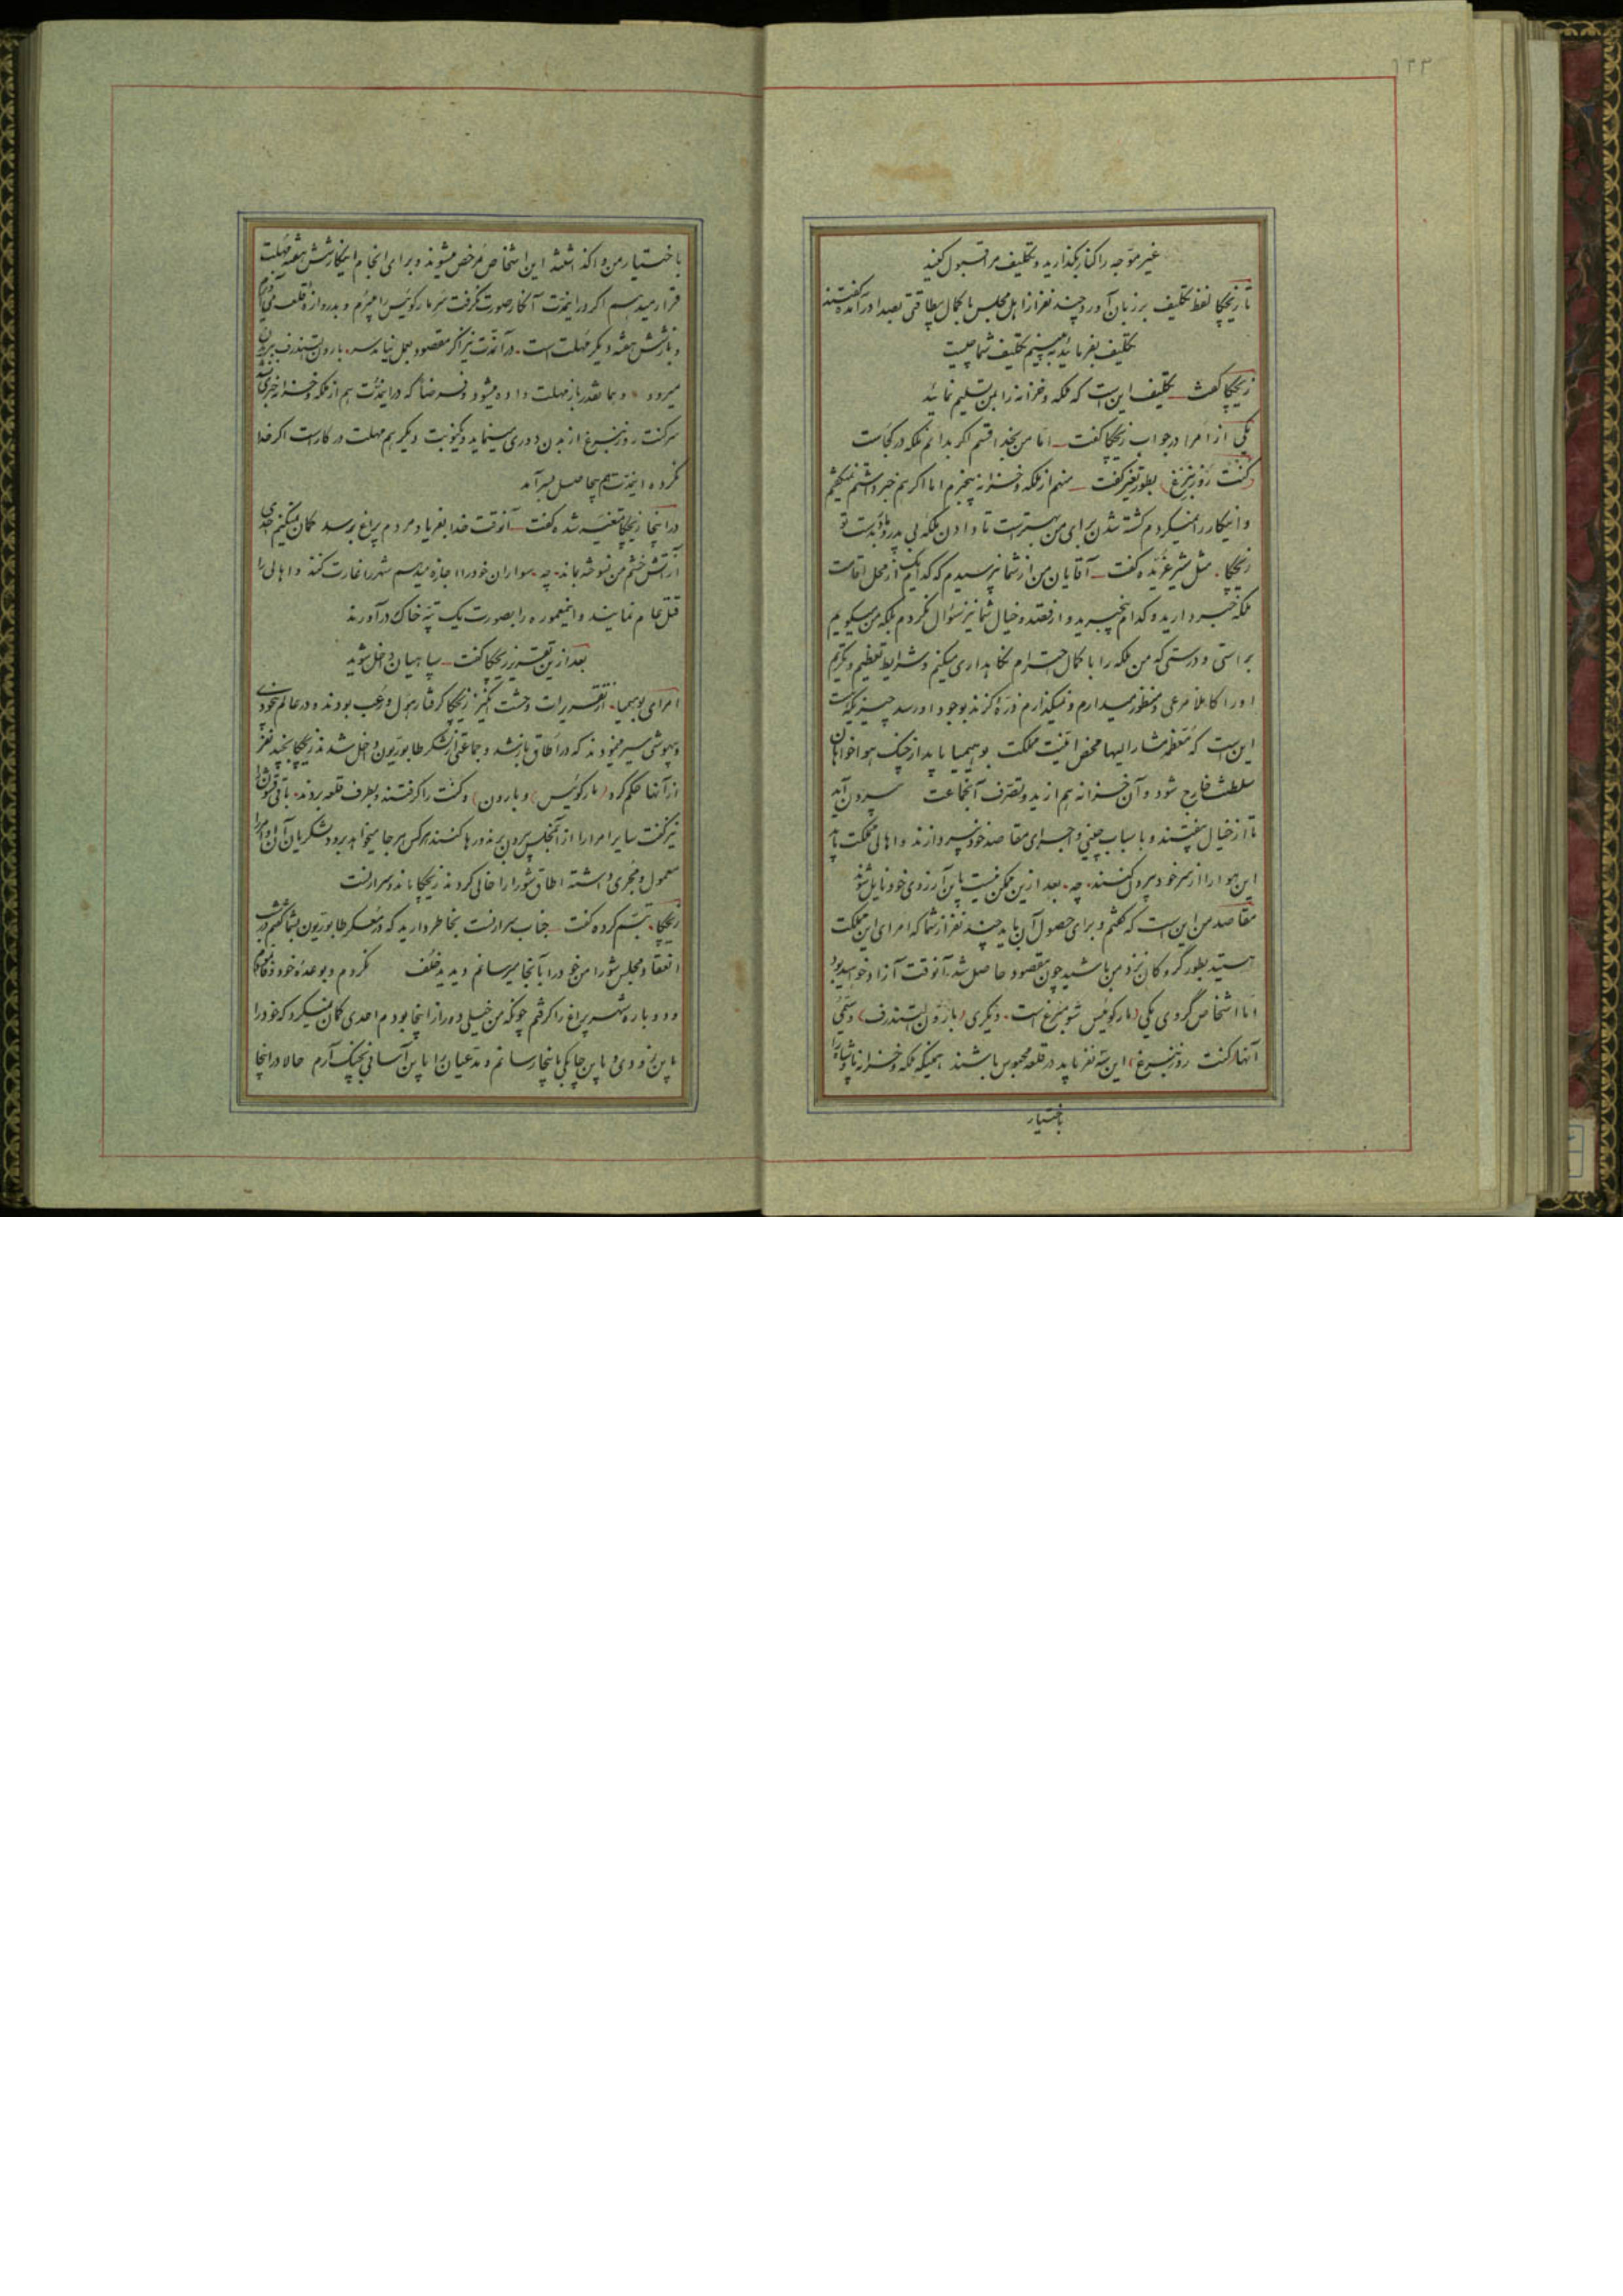 ۱۳۳
غیر موجه را کنار بگذارید و تکلیف مرا قبول کنید
تا زیچکا لفظ تکلیف بر زبان آورد چند نفر از اهل مجلس با کمال بیطاقتی بصدا در آمده گفتند
تکلیف بفرمائید ببینیم تکلیف شما چیست
زیچکا گفت تکلیف این است که ملکه و خزانه را بمن تسلیم نمائید
یکی از امرا در جواب زیچکا گفت اما من بخدا قسم اگر بدانم ملکه در کجاست
کنت روزنبرغ بطور تغیر گفت منهم از ملکه و خزانه بیخبرم اما اگر هم خبر داشتم نمیگفتم
و اینکار را نمیکردم کشته شدن برای من بهتر است تا دادن ملکه بی پدر بدست تو
زیچکا مثل شیر غرنده گفت آقایان من از شما نپرسیدم که کدام یک از محل اقامت
ملکه خبر دارید و کدام بیخبرید و از قصد و خیال شما نیز سؤال نکردم بلکه من میگویم
براستی و درستی که من ملکه را با کمال احترام نگاهداری میکنم و شرایط تعظیم و تکریم
او را کاملا مرعی و منظور میدارم و نمیگذارم ذره گزند بوجود او رسد چیزیکه هست
این است که معظمه مشار الیها محض امنیت مملکت بوهیمیا باید از چنگ هواخواهان
سلطنت خارج شود و آن خزانه هم از ید و تصرف آنجماعت بیرون آید
تا از خیال بیفتند و باسباب چینی و اجرای مقاصد خود نپردازند و اهالی مملکت باید
این هوا را از سر خود بیرون کنند چه بعد ازین ممکن نیست باین آرزوی خود نایل شوند
مقاصد من این است که گفتم و برای حصول آن باید چند نفر از شما که امرای این مملکت
هستید بطور گروگان نزد من باشید چون مقصود حاصل شد آنوقت آزاد خواهید بود
اما اشخاص گروی یکی (مارکوئیس شومبرغ) است و یکری (بارون لستندرف) و سیمی
آنها کنت (روزنبرغ) این سه نفر باید در قلعه محبوس باشند همینکه ملکه و خزانه پادشاه را
باختیار
باختیار من واگذاشتند این اشخاص مرخص میشوند و برای انجام اینکار شش هفته مهلت
قرار میدهم اگر در اینمدت آنکار صورت نگرفت سر مارکوئیس را میبرم و بدروازه قلعه می‌آویزم
و باز شش هفته دیگر مهلت است در آنمدت نیز اگر مقصود بعمل نیامد سر بارون لستندرف
میرود و بهمانقدر باز مهلت داده میشود و فرضا که در اینمدت هم از ملکه و خزانه خبری
سر کنت روزنبرغ از بدن دوری مینماید و یکنوبت دیگر هم مهلت در کار است اگر خدا
نکرده اینمدت هم بیحاصل بسر آمد
در اینجا زیچکا متغیر شده گفت آنوقت خدا بفریاد مردم پراغ برسد گمان میکنم احدی
از آتش خشم من نسوخته بماند چه سواران خود را اجازه میدهم شهر را غارت کنند و اهالی را
قتل عام نمایند و اینمعموره را بصورت یک تپه خاک در آورند
بعد ازین تقریر زیچکا گفت سپاهیان داخل شوید
امرای بوهیمیا از تقریرات وحشت انگیز زیچکا گرفتار هول و رعب بودند و در عالم بیخودی
و بیهوشی سیر مینمودند که در اطاق باز شد و جماعتی از لشکر طابوریون داخل شدند زیچکا بچند نفر
از آنها حکم کرد (مارکوئیس) و (بارون) و کنت را گرفتند و بطرف قلعه بردند بباقی قشون
نیز گفت سایر امرا را از مجلس بیرون برند و رها کنند هرکس هر جا میخواهد برود لشکریان آن اوامر را
معمول و مجری داشته اطاق شورا را خالی کردند زیچکا ماند و سرارنست
زیچکا تبسم کرده گفت جناب سرارنست بخاطر دارید که در معسکر طابوریون بشما گفتم در شب
انعقاد مجلس شورا من خود را بآنجا میرسانم دیدید خلف نکردم و بوعده خود وفا نمودم
و دوباره شهر پراغ را گرفتم چونکه من خیلی دور از اینجا بودم احدی گمان نمیکرد که خود را
باین زودی و باین چابکی باینجا رسانم و مدعیان را باین آسانی بچنگ آرم حالا در اینجا